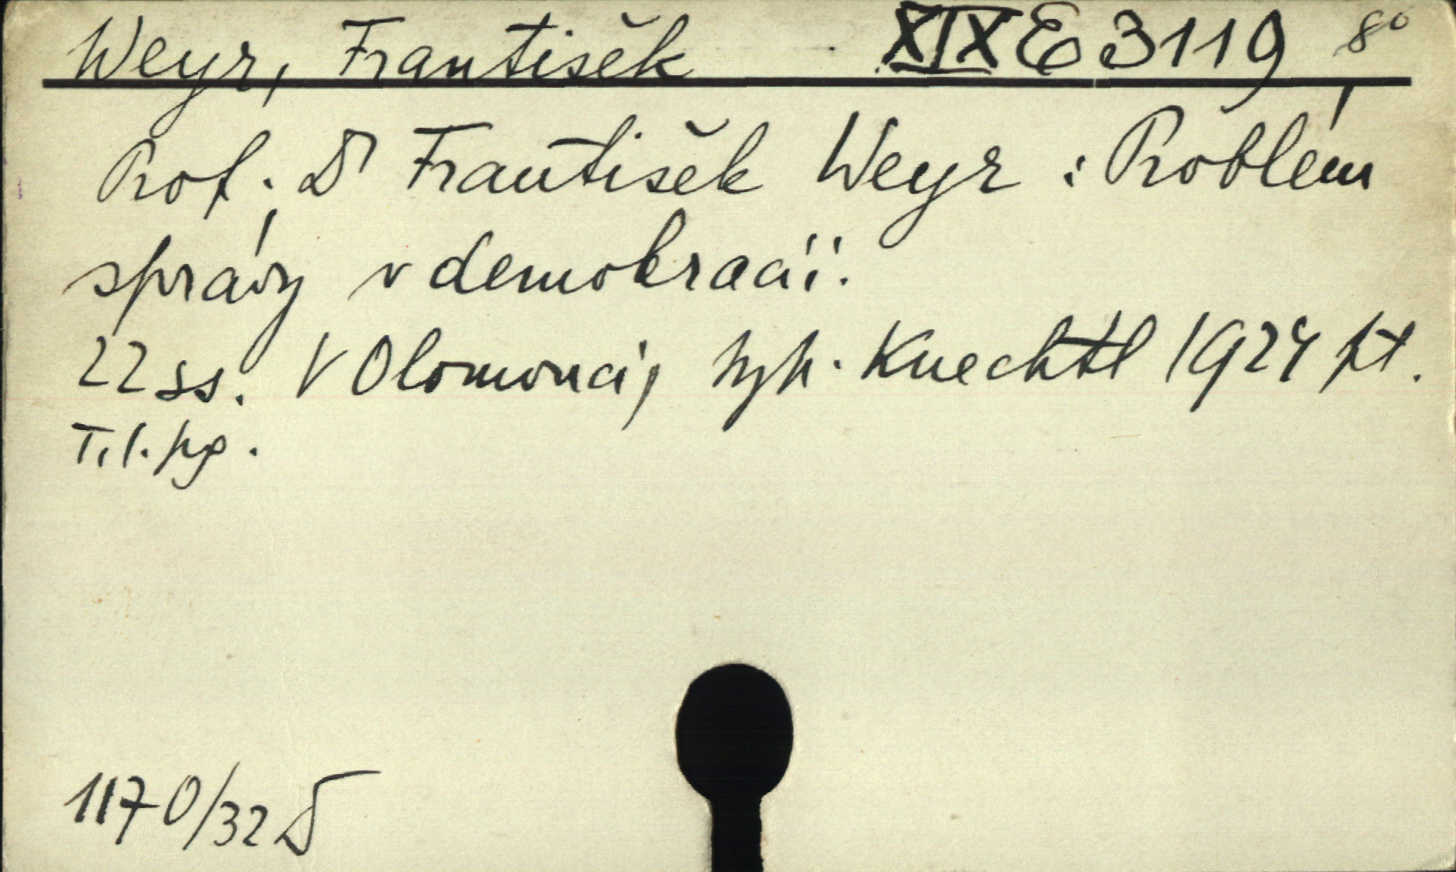 Weyr, František XIX E 3119 8°
Prof. Dr František Weyr : Problém
správy v demokracii.
22 ss. V Olomouci, typ. Knechtl 1924 pt.
T. l. pg.
1170/32 D